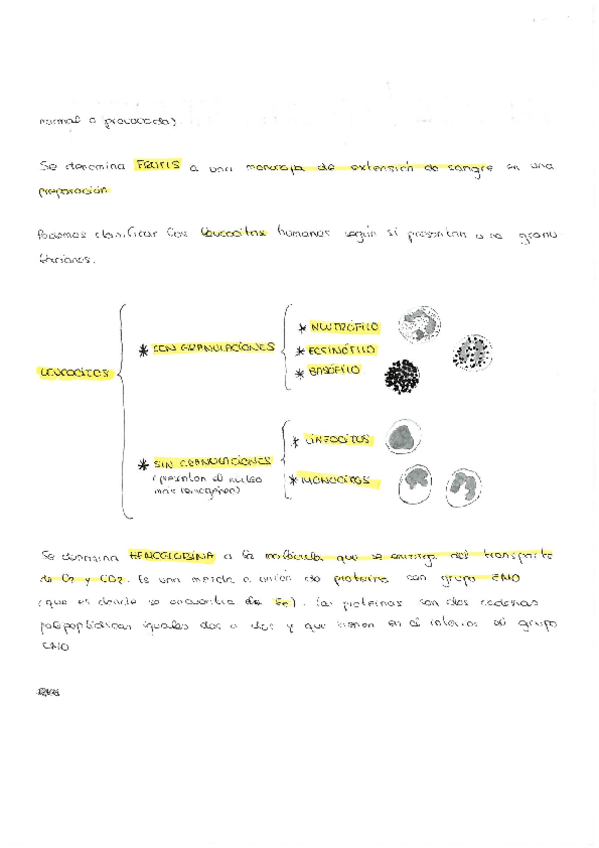 normal o provocada).
Se denomina FROTIS a una manera de extensión de sangre en una
preparación
Podemos clasificar los leucocitos humanos según si presentan o no granu-
laciones.
LEUCOCITOS
* CON GRANULACIONES
* NEUTRÓFILO
* EOSINÓFILO
* BASÓFILO
* SIN GRANULACIONES
(presentan el núcleo
más homogéneo)
* LINFOCITOS
* MONOCITOS
Se denomina HEMOGLOBINA a la molécula que se encarga del transporte
de O2 y CO2. Es una mezcla o unión de proteína con grupo EMO
(que es donde se encuentra el Fe). Las proteínas son dos cadenas
polipeptídicas iguales dos a dos y que tienen en el interior el grupo
EMO